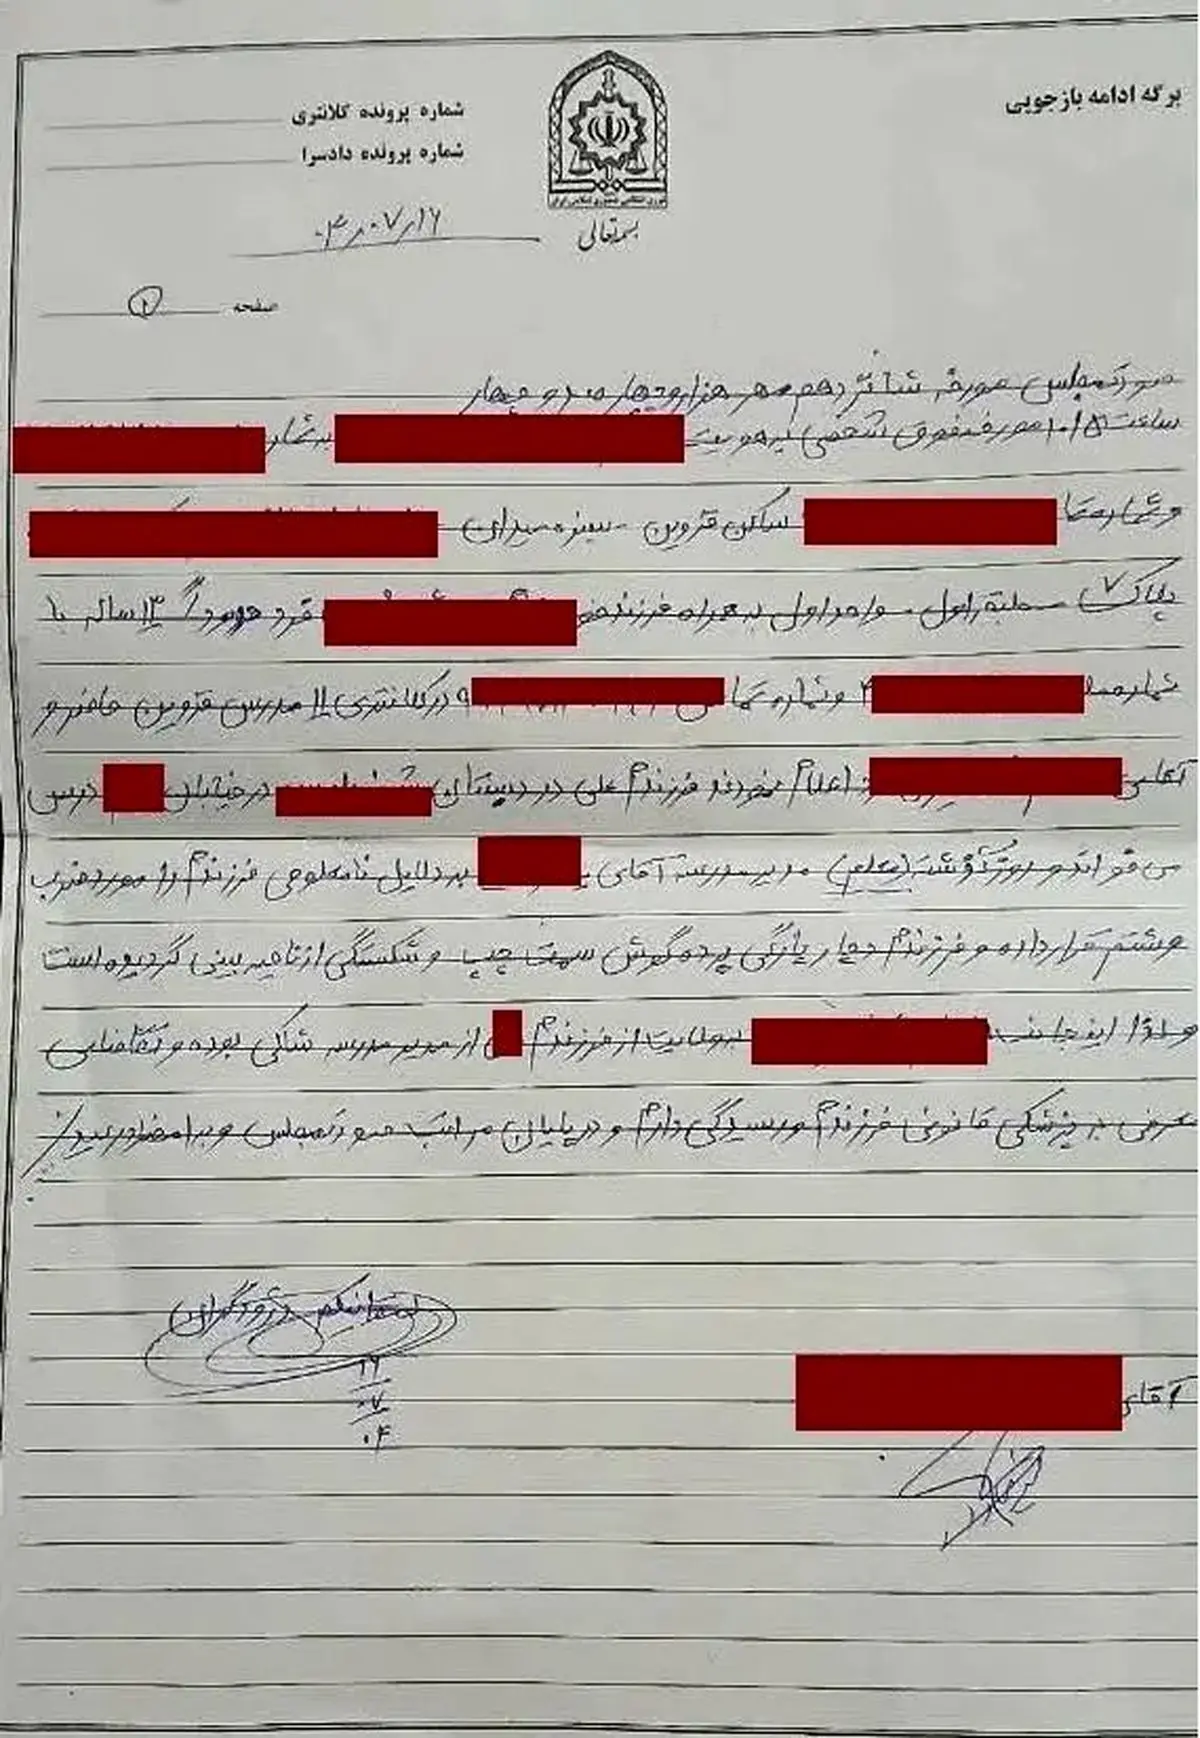 برگه ادامه بازجویی
شماره پرونده کلانتری
شماره پرونده دادسرا
نیروی انتظامی جمهوری اسلامی ایران
بسمه‌تعالی
۰۴/۰۷/۱۶
صفحه ۱
صورتمجلس مورخه شانزدهم مهر هزار و چهارصد و چهار
ساعت ۱۰/۱۵ مورخه فوق شخصی به هویت به شماره
و شماره تماس ساکن قزوین سبزه میدان
پلاک ۷ طبقه اول واحد اول به همراه فرزند خود ۱۳ ساله با
شماره ملی و شماره تماس در کلانتری ۱۱ مدرس قزوین حاضر و
آقای اعلام نمودند فرزندم علی در دبستان در خیابان درس
می خواند و روز گذشته (معلم) مدیر مدرسه آقای به دلایل نامعلومی فرزندم را مورد ضرب
و شتم قرار داده و فرزندم دچار پارگی پرده گوش سمت چپ و شکستگی از ناحیه بینی گردیده است
ولذا اینجانب به ولایت از فرزندم از مدیر مدرسه شاکی بوده و تقاضای
معرفی به پزشکی قانونی فرزندم و رسیدگی دارم و در پایان مراتب صورتمجلس و به امضا رسید
آقای
۱۶
۰۷
۰۴